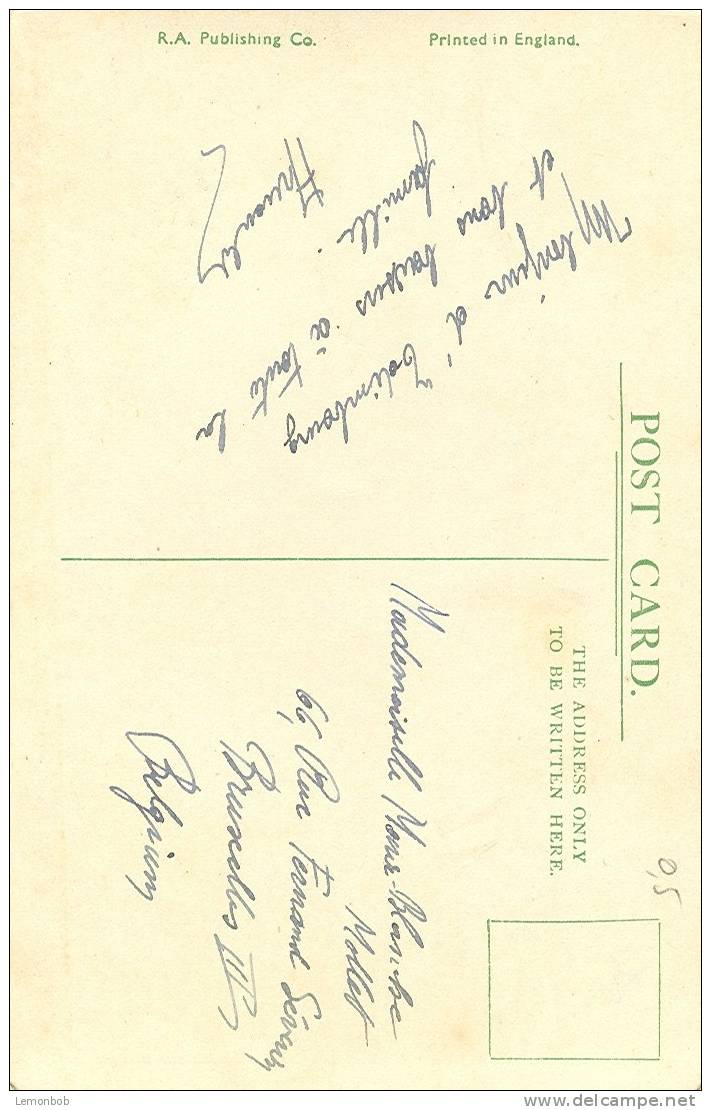 R.A. Publishing Co.
Printed in England.
POST CARD.
THE ADDRESS ONLY
TO BE WRITTEN HERE.
bonjour d'Edimbourg
et bons baisers à toute la
famille.
Mademoiselle Marie-Blanche
Mollet
66, Rue Fernand Séverin
Bruxelles III
Belgium
0,5
Lemonbob
www.delcampe.net